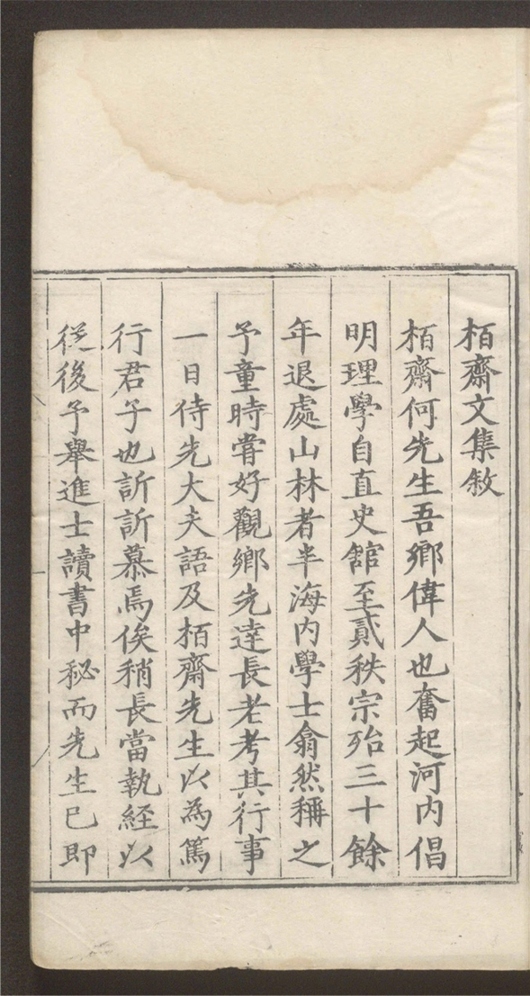 栢齋文集敘
栢齋何先生吾鄉偉人也奮起河内倡
明理學自直史館至貳秩宗殆三十餘
年退處山林者半海内學士翕然稱之
予童時嘗好觀鄉先逹長老考其行事
一日侍先大夫語及栢齋先生以為篤
行君子也訢訢慕焉俟稍長當執經以
從後予舉進士讀書中秘而先生已即